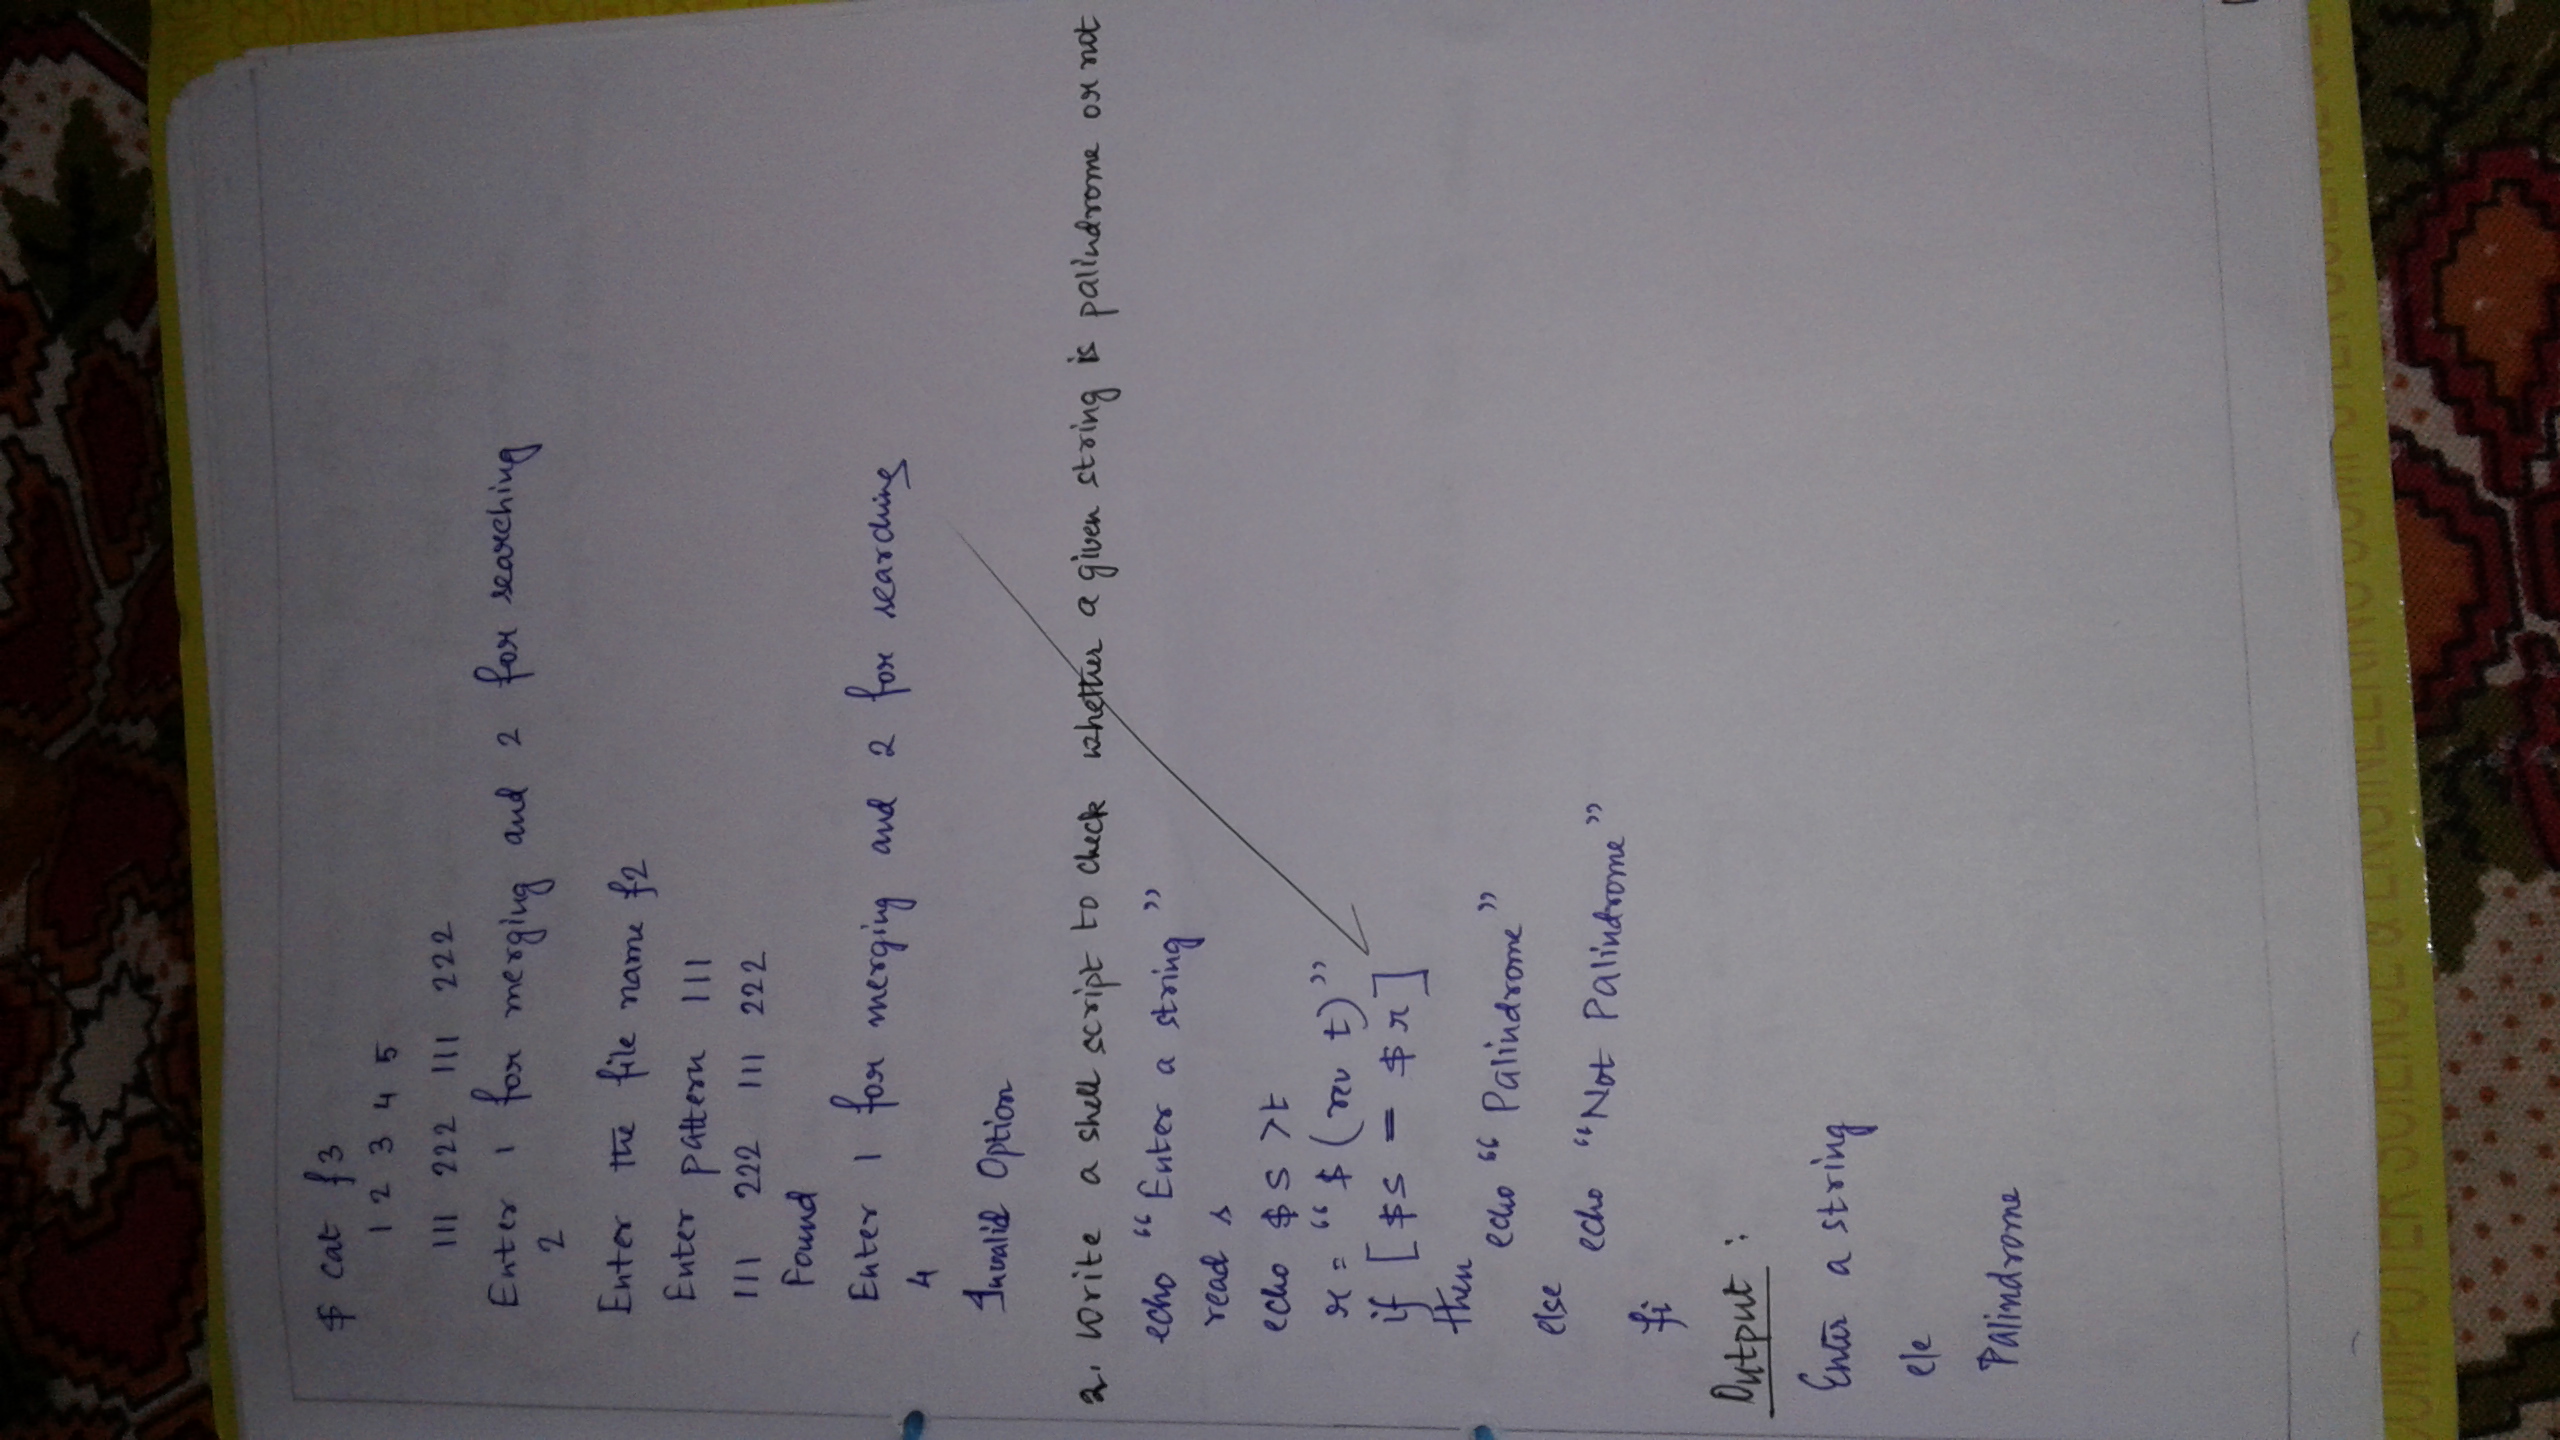 $ cat f3
1 2 3 4 5
111 222 111 222
Enter 1 for merging and 2 for searching
2
Enter the file name f2
Enter pattern 111
111 222 111 222
Found
Enter 1 for merging and 2 for searching
4
Invalid Option
2. Write a shell script to check whether a given string is palindrome or not
echo “Enter a string”
read s
echo $s >t
r = “$(rev t)”
if [$s = $r]
then
echo “Palindrome”
else
echo “Not Palindrome”
fi
Output :
Enter a string
ele
Palindrome
COMPUTER SCIENCE & ENGINEERING COMPUTER SCIENCE &